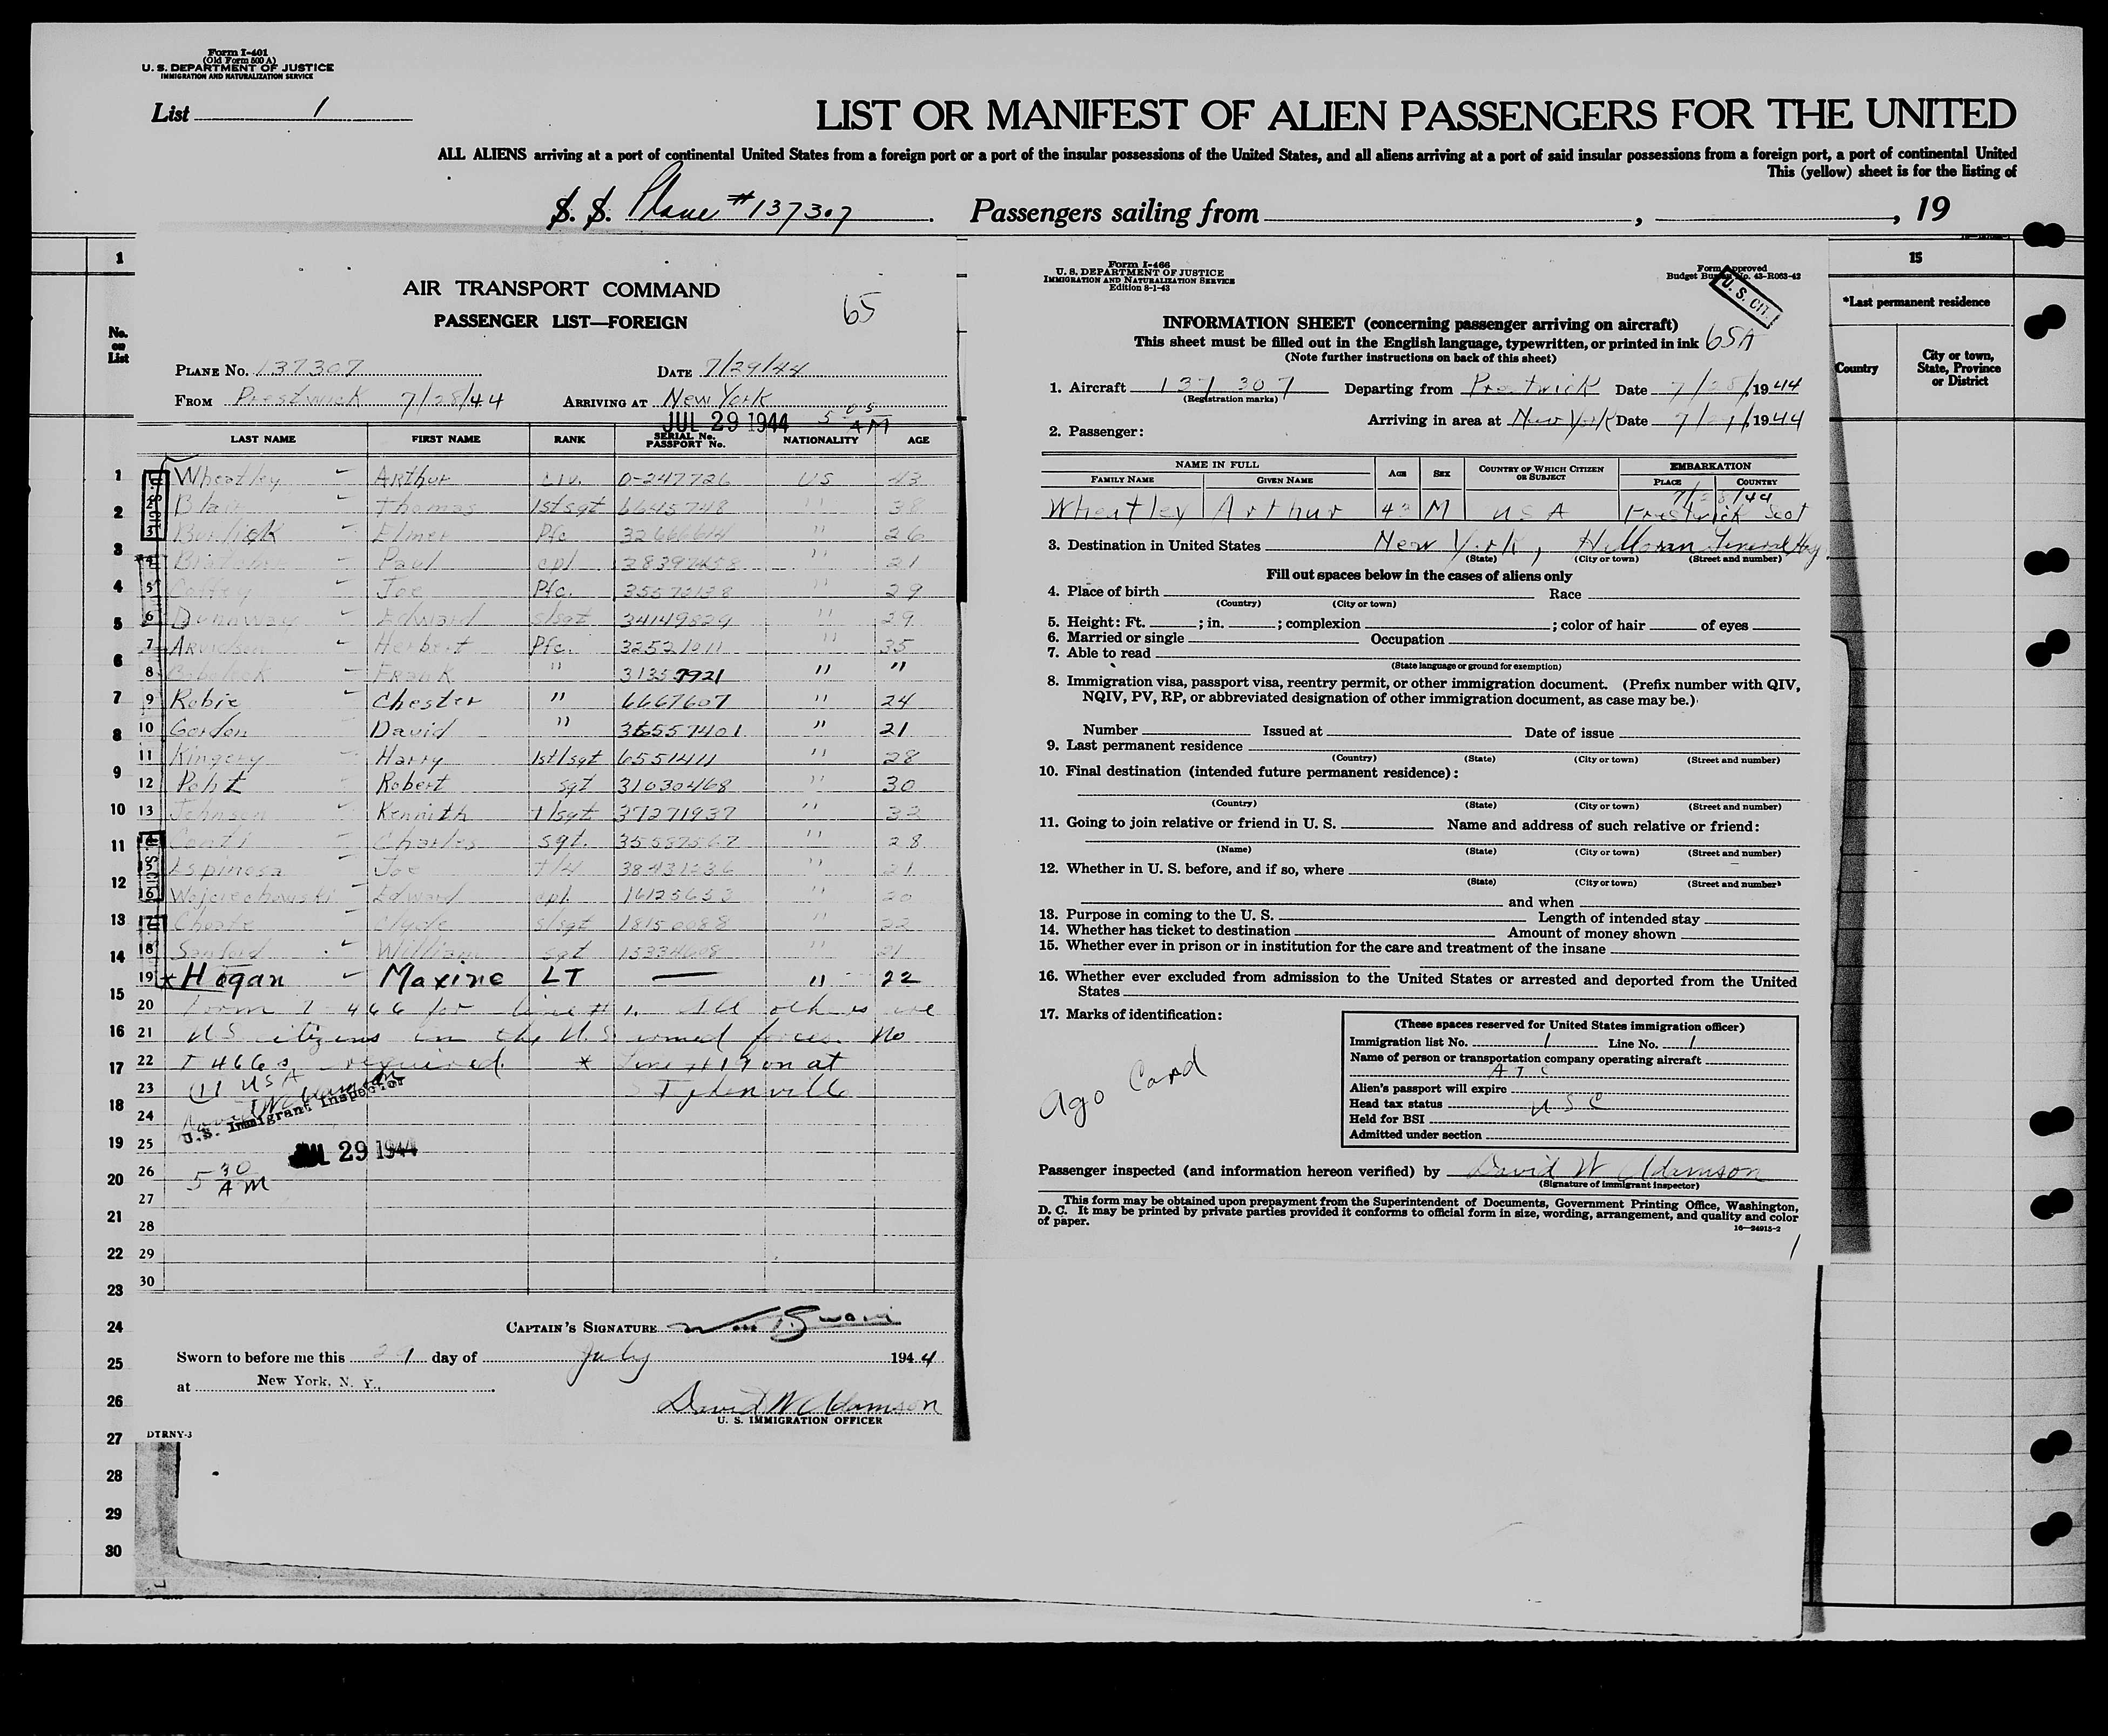 Form I-401
(Old Form 500 A)
U. S. DEPARTMENT OF JUSTICE
IMMIGRATION AND NATURALIZATION SERVICE
List 1
LIST OR MANIFEST OF ALIEN PASSENGERS FOR THE UNITED
ALL ALIENS arriving at a port of continental United States from a foreign port or a port of the insular possessions of the United States, and all aliens arriving at a port of said insular possessions from a foreign port, a port of continental United
This (yellow) sheet is for the listing of
S. S. Plane #137307. Passengers sailing from , , 19
1
No. on List
AIR TRANSPORT COMMAND
PASSENGER LIST—FOREIGN
65
PLANE No. 137307 DATE 7/29/44
FROM Prestwick 7/28/44 ARRIVING AT New York
JUL 29 1944 5 05 AM
LAST NAME FIRST NAME RANK SERIAL No. PASSPORT No. NATIONALITY AGE
1 Wheatley Arthur Civ. 0-247726 US 43
2 Blair Thomas 1st sgt 6645748 " 38
3 Elmer Pfc 32666614 " 26
4 Paul cpl " 21
5 Joe Pfc. " 29
6 Dunnway Edward s/sgt 34149829 " 29
7 Arvidson Herbert Pfc. 32521011 " 35
8 Frank " 31357921 " "
9 Robie Chester " 6667607 " 24
10 Gordon David " 36557401 " 21
11 Kingery Harry 1st/sgt 6551411 " 28
12 Robert sgt 31030468 " 30
13 Johnson Kennith t/sgt 37271937 " 32
14 Conti Charles sgt. 35587567 " 28
15 Espinosa Joe t/4 38431236 " 21
16 Wojciechowski Edward cpl 16125653 " 20
17 Choate Clyde s/sgt 18150088 " 22
18 Sanford William sgt 15334608 " 21
19 * Hogan Maxine LT — " 22
20 Form I-466 for line #1. All others are
21 US citizens in the U.S. armed forces. No
22 I 466s required. * Line #19 on at
23 (1) USA Stephenville
24 David W Adamson
U.S. Immigrant Inspector
25 JUL 29 1944
26 5 30 AM
27
28
29
30
CAPTAIN'S SIGNATURE
Sworn to before me this 29 day of July 1944
at New York, N. Y.,
David W Adamson
U. S. IMMIGRATION OFFICER
DTRNY-3
Form I-466
U. S. DEPARTMENT OF JUSTICE
IMMIGRATION AND NATURALIZATION SERVICE
Edition 8-1-43
Form approved
Budget Bureau No. 43-R063-42
U. S. CIT.
INFORMATION SHEET (concerning passenger arriving on aircraft)
This sheet must be filled out in the English language, typewritten, or printed in ink 65A
(Note further instructions on back of this sheet)
1. Aircraft 137 307 Departing from Prestwick Date 7/28/1944
(Registration marks)
Arriving in area at New York Date 7/29/1944
2. Passenger:
NAME IN FULL AGE SEX COUNTRY OF WHICH CITIZEN OR SUBJECT EMBARKATION
FAMILY NAME GIVEN NAME PLACE COUNTRY
7/28/44
Wheatley Arthur 43 M USA Prestwick Scot
3. Destination in United States New York, Halloran General Hosp
(State) (City or town) (Street and number)
Fill out spaces below in the cases of aliens only
4. Place of birth Race
(Country) (City or town)
5. Height: Ft. ; in. ; complexion ; color of hair of eyes
6. Married or single Occupation
7. Able to read
(State language or ground for exemption)
8. Immigration visa, passport visa, reentry permit, or other immigration document. (Prefix number with QIV,
NQIV, PV, RP, or abbreviated designation of other immigration document, as case may be.)
Number Issued at Date of issue
9. Last permanent residence
(Country) (State) (City or town) (Street and number)
10. Final destination (intended future permanent residence):
(Country) (State) (City or town) (Street and number)
11. Going to join relative or friend in U. S. Name and address of such relative or friend:
(Name) (State) (City or town) (Street and number)
12. Whether in U. S. before, and if so, where
(State) (City or town) (Street and number)
and when
13. Purpose in coming to the U. S. Length of intended stay
14. Whether has ticket to destination Amount of money shown
15. Whether ever in prison or in institution for the care and treatment of the insane
16. Whether ever excluded from admission to the United States or arrested and deported from the United
States
17. Marks of identification:
Ago Card
(These spaces reserved for United States immigration officer)
Immigration list No. 1 Line No. 1
Name of person or transportation company operating aircraft
ATC
Alien's passport will expire
Head tax status USC
Held for BSI
Admitted under section
Passenger inspected (and information hereon verified) by David W Adamson
(Signature of immigrant inspector)
This form may be obtained upon prepayment from the Superintendent of Documents, Government Printing Office, Washington,
D. C. It may be printed by private parties provided it conforms to official form in size, wording, arrangement, and quality and color
of paper.
16—24915-2
1
15
*Last permanent residence
Country City or town, State, Province or District
1
2
3
4
5
6
7
8
9
10
11
12
13
14
15
16
17
18
19
20
21
22
23
24
25
26
27
28
29
30